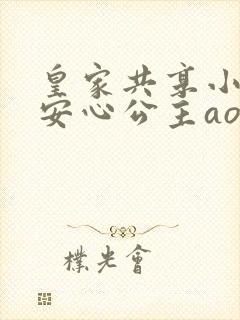 皇家共享小
安心公主ao
朴光會